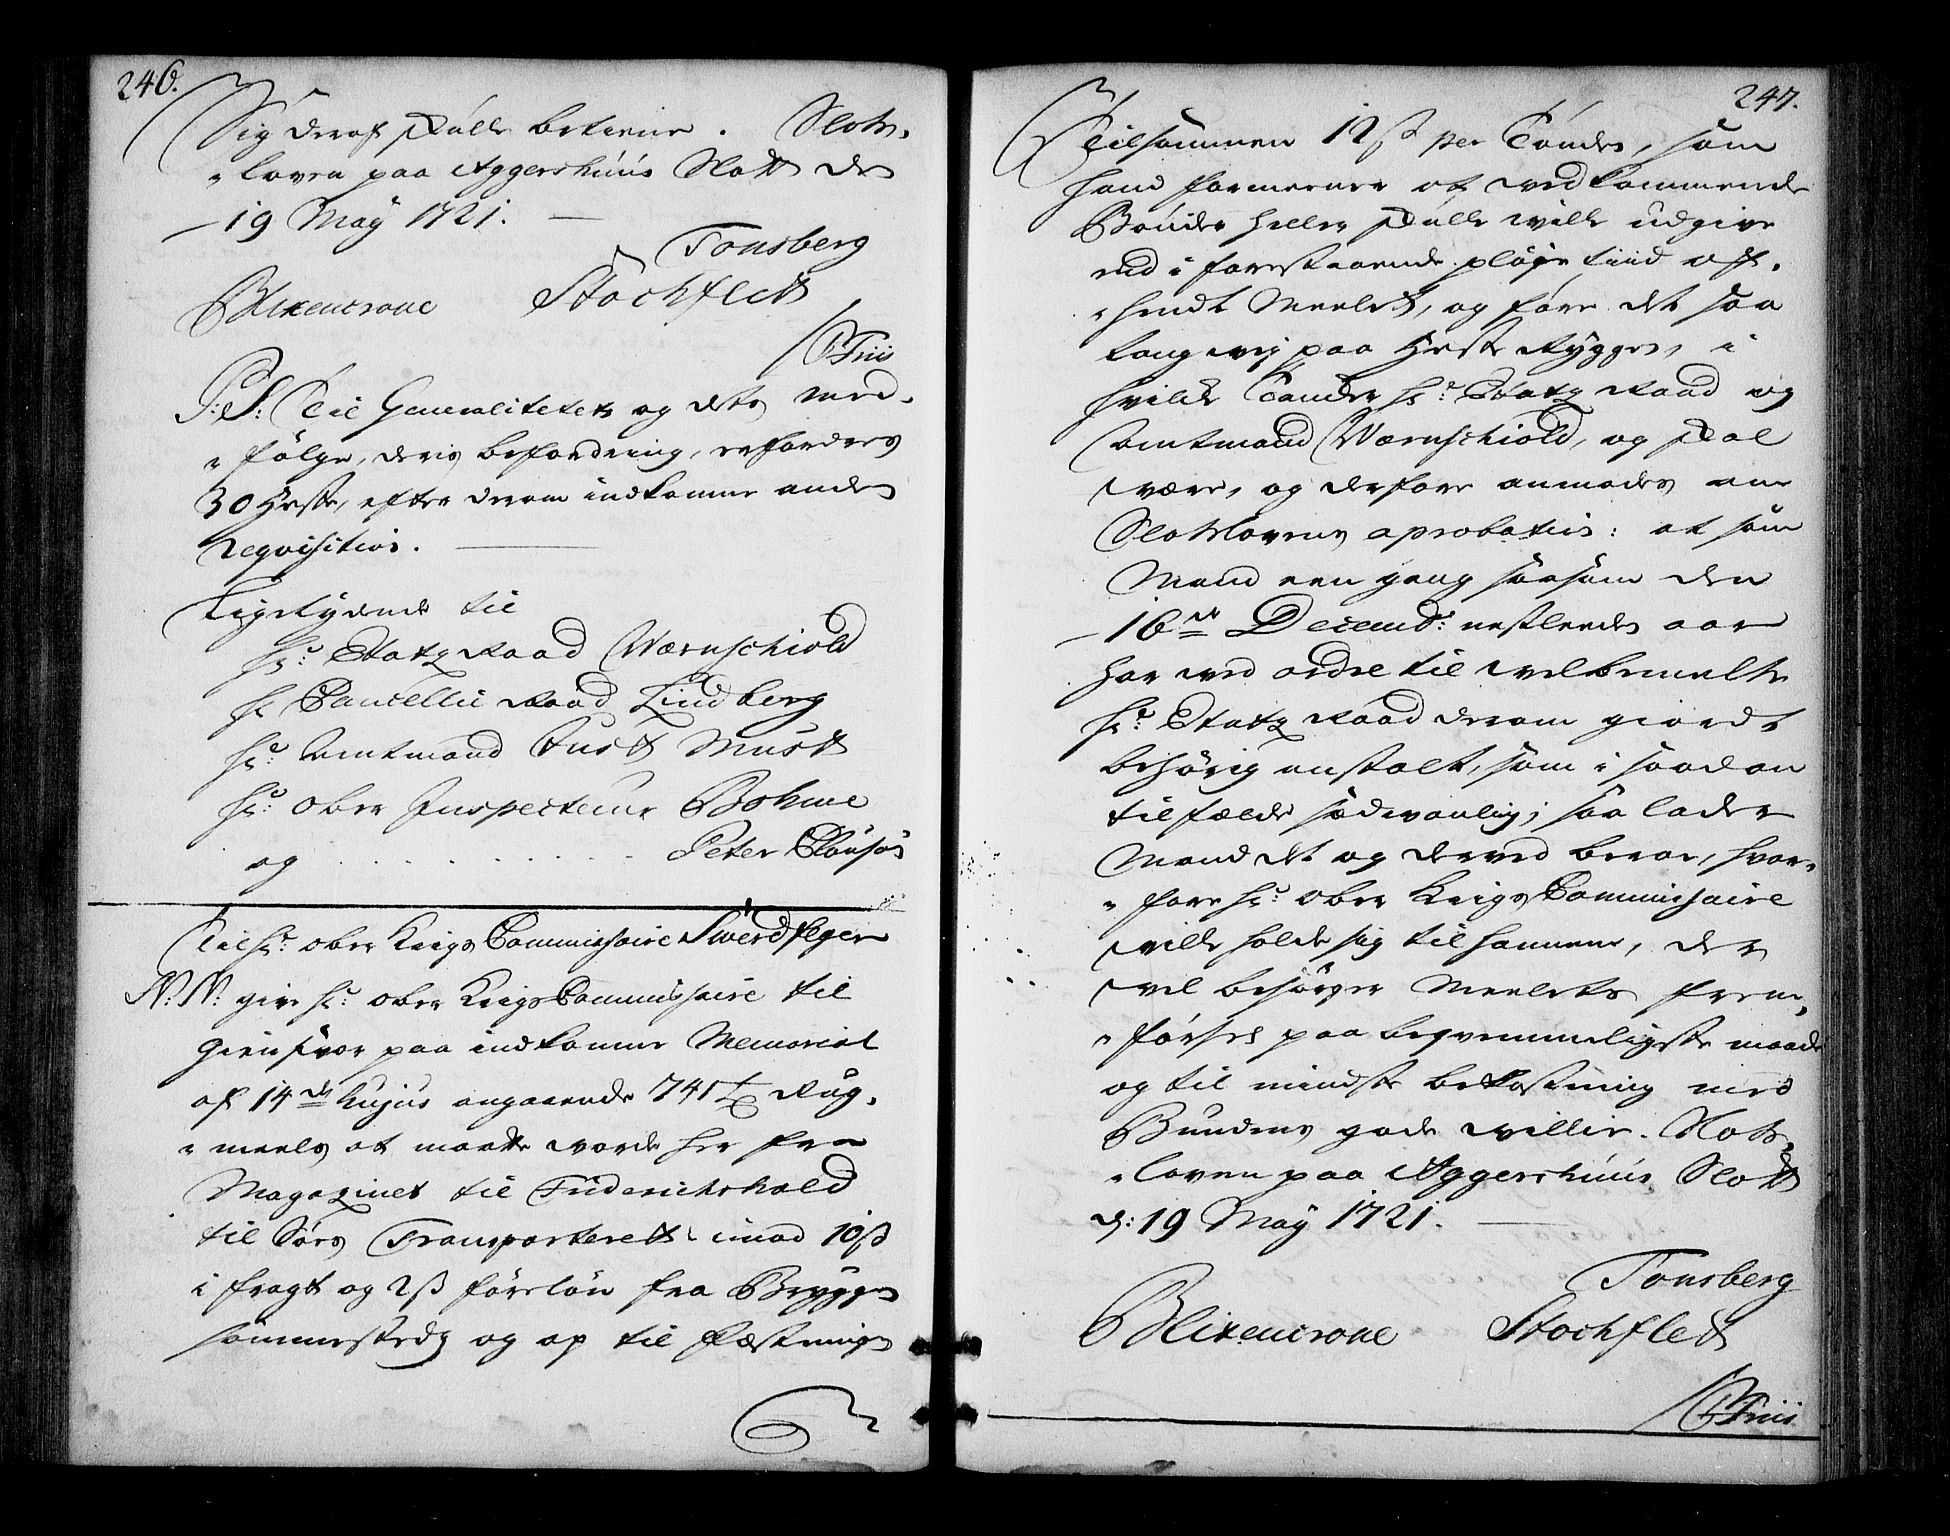 246.
Sig deraf skulle betiene. Slots-
"loven paa Aggershuus Slott den
19 May 1721.
Tonsberg
Blixencrone Stochflett
Friis
P: S: Til Generalitetet og dets med-
"følge, deris befordring, erfordres
30 Heste, efter derom indkomne anden
Requisition.
Ligelydende til
Hr: Etatz Raad Wærnschiold
Hr Cancellie Raad Lindberg
Hr: Amtmand Just Must
Hr: ober Inspecteur Bohme
og . . . . . . . . Peter Clausøn
Til Hr: ober Krigs Commissaire Swerdfeger
N: N: give Hr: ober Krigs Commissaire til
Giensvar paa indkomne Memorial
af 14de hujus angaaende 741 Rug-
"meels at maatte vorde her fra
Magazinet til Friderichshald
til Søes Transporteret imod 10 ß
i fragt og 2 ß førsløn fra Brygge
sammestedz og op til Fæstningen
247.
Tilsammen 12 ß per Tønde, som
hand formeener at vedkommende
Bønder heller skulle wille udgive
end i forestaaende pløye tiid af-
"hendt Meelet, og føre det saa
lang vej paa Heste Rygge, i
hvilke Tancker Hr: Etatz Raad og
Amtmand Wærnschiold, og skal
være, og derfore anmodes om
Slotslovens aprobation: at som
Mand een gang saasom den
16de Decemb: nestleeden aar
har ved ordre til velbemelte
Hr: Etatz Raad derom giordt
behørig anstalt, som i saadan
tilfælde sædvanlig, saa lader
Mand det og derved beroe, hvor-
"fore Hr: ober Krigs Commissaire
ville holde sig til hannem, der
vel besørger Meelets frem-
"førsel paa beqvemmeligste maade
og til mindste bekostning med
Bundens gode willie. Slots-
"loven paa Aggershuus Slott
d: 19 May 1721.
Tonsberg
Blixencrone Stochflett
Friis